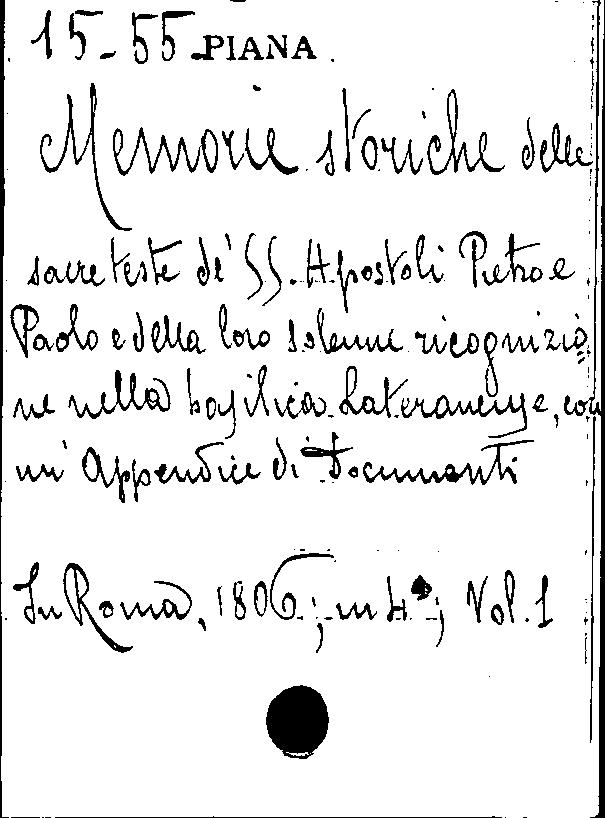 15-55 PIANA
Memorie storiche delle
sacre teste de' SS. Apostoli Pietro e
Paolo e della loro solenne ricognizio=
ne nella basilica Lateranense, con
un' Appendice di Documenti
In Roma, 1806; in 4°; Vol. 1